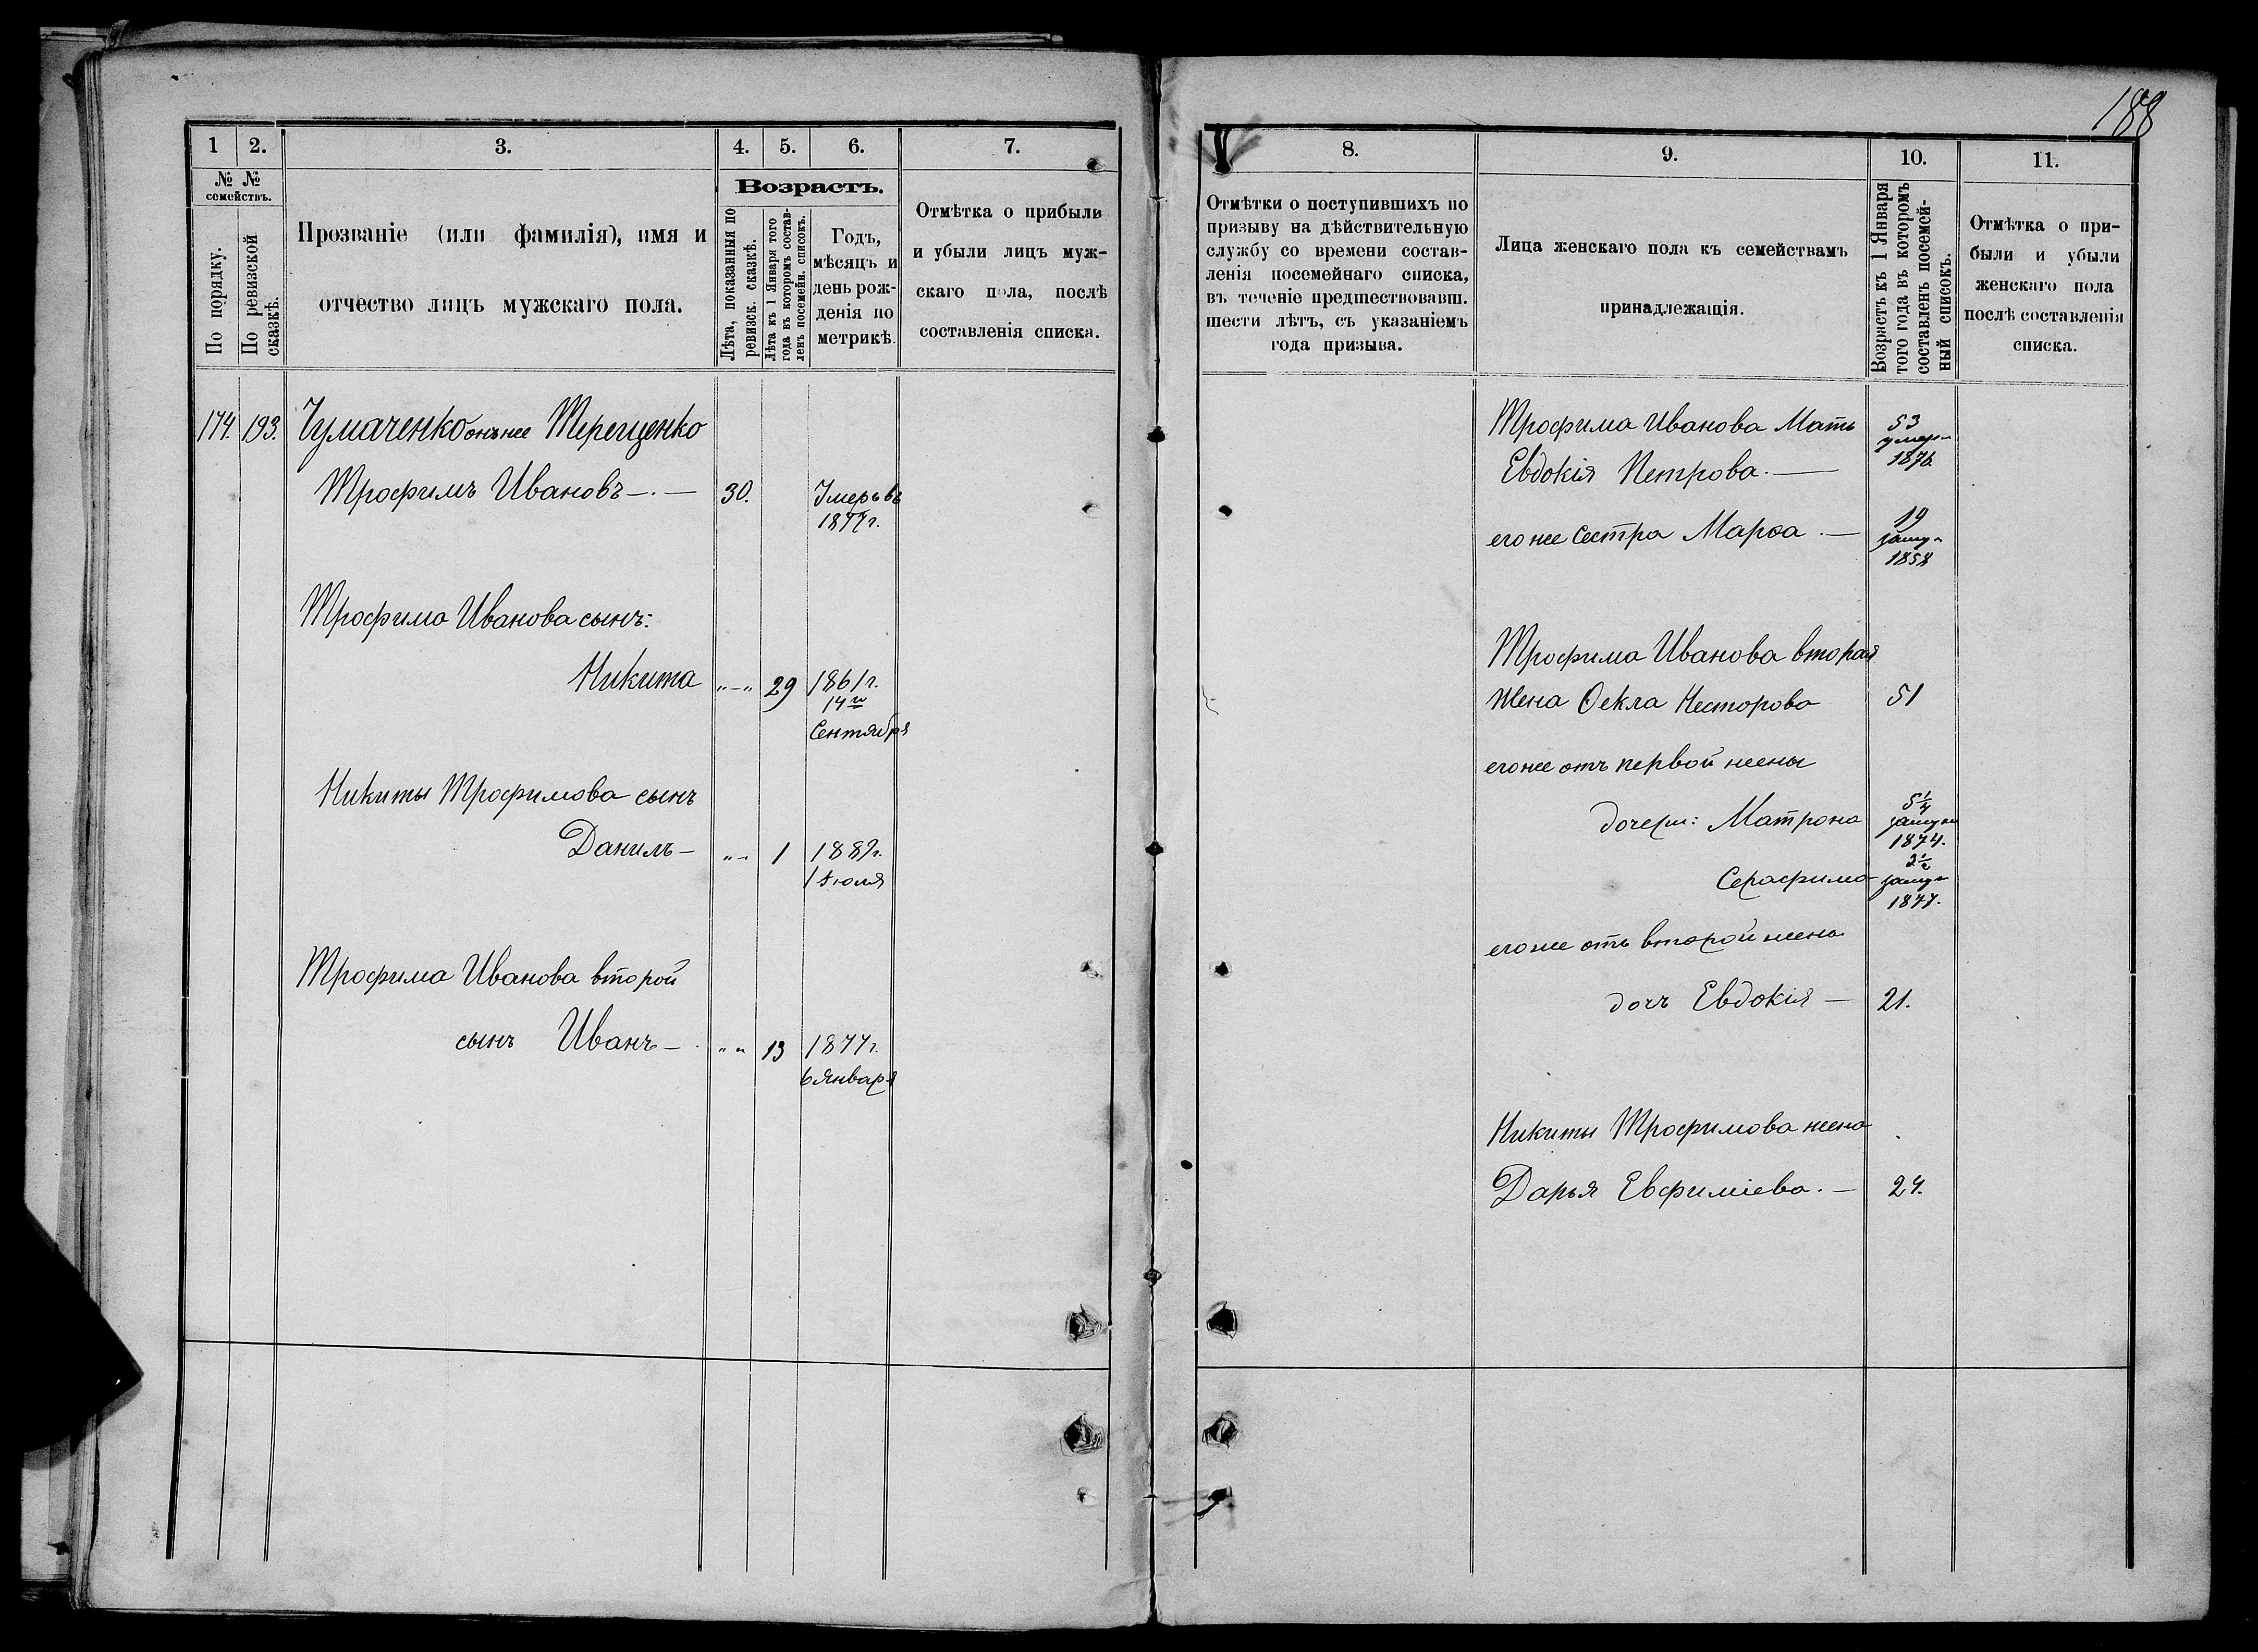 188
1
2.
3.
4.
5.
6.
7.
№ №
семействъ.
По порядку.
По ревизской
сказкѣ.
Прозваніе (или фамилія), имя и
отчество лицъ мужскаго пола.
Возрастъ.
Лѣта, показанныя по
ревизск. сказкѣ.
Лѣта къ 1 Января того
года въ которомъ состав-
ленъ посемейн. списокъ.
Годъ,
мѣсяцъ и
день рож-
денія по
метрикѣ.
Отмѣтка о прибыли
и убыли лицъ муж-
скаго пола, послѣ
составленія списка.
174. 193. Чумаченко онъ же Терещенко
Трофимъ Ивановъ — . — 30. Умеръ въ
1877 г.
Трофима Иванова сынъ:
Никита „ — „ 29 1861 г.
14го
Сентября
Никиты Трофимова сынъ
Данилъ — „ — 1 1889 г.
1 Іюля
Трофима Иванова второй
сынъ Иванъ — . „ „ 13 1877 г.
6 Января
8.
9.
10.
11.
Отмѣтки о поступившихъ по
призыву на дѣйствительную
службу со времени состав-
ленія посемейнаго списка,
въ теченіе предшествовавш.
шести лѣтъ, съ указаніемъ
года призыва.
Лица женскаго пола къ семействамъ
принадлежащія.
Возрастъ къ 1 Января
того года въ которомъ
составленъ посемей-
ный списокъ.
Отмѣтка о при-
были и убыли
женскаго пола
послѣ составленія
списка.
Трофима Иванова Мать 53
умер-
Евдокія Петрова. — 1876.
его же сестра Марѳа . — 19
замуж
1858
Трофима Иванова вторая
жена Ѳекла Несторова 51
его же отъ первой жены
дочери: Матрона 5 1/4
замуж
1874.
Серафима 2 1/2
замуж
1877.
его же отъ второй жены
дочъ Евдокія — 21.
Никиты Трофимова жена
Дарья Евфиміева. — 24.